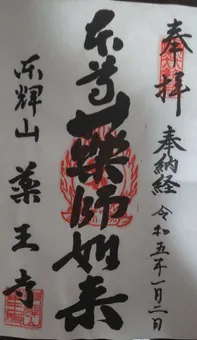 奉拝
奉納経 令和五年一月二日
本尊薬師如来
东輝山 薬王寺